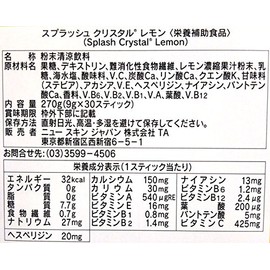 スプラッシュ クリスタル® レモン〈栄養補助食品〉
(Splash Crystal® Lemon)
名称：粉末清涼飲料
原材料：果糖、デキストリン、難消化性食物繊維、レモン濃縮果汁粉末、乳
糖、海水塩、酸味料、V.C、炭酸Ca、リン酸Ca、クエン酸K、甘味料
(ステビア)、アカシア、香料、V.E、ヘスペリジン、ナイアシン、パントテン
酸Ca、V.B6、V.B1、V.A、葉酸、V.B12
内容量：270g(9g×30スティック)
賞味期限：枠外下部に記載
保存方法：直射日光、高温・多湿をさけて保存してください。
販売者：ニュー スキン ジャパン 株式会社 TA
東京都新宿区西新宿6-5-1
お問合せ先：(03)3599-4506
栄養成分表示(1スティック当たり)
エネルギー 32kcal カルシウム 150mg ナイアシン 13mg
タンパク質 0g カリウム 30mg ビタミンB6 1.2mg
脂質 0g ビタミンA 540μgRE ビタミンB12 2.4μg
糖質 7.7g ビタミンE 16mg 葉酸 200μg
食物繊維 0.7g ビタミンB1 0.8mg パントテン酸 5mg
ナトリウム 27mg ビタミンB2 1.1mg ビタミンC 425mg
ヘスペリジン 20mg